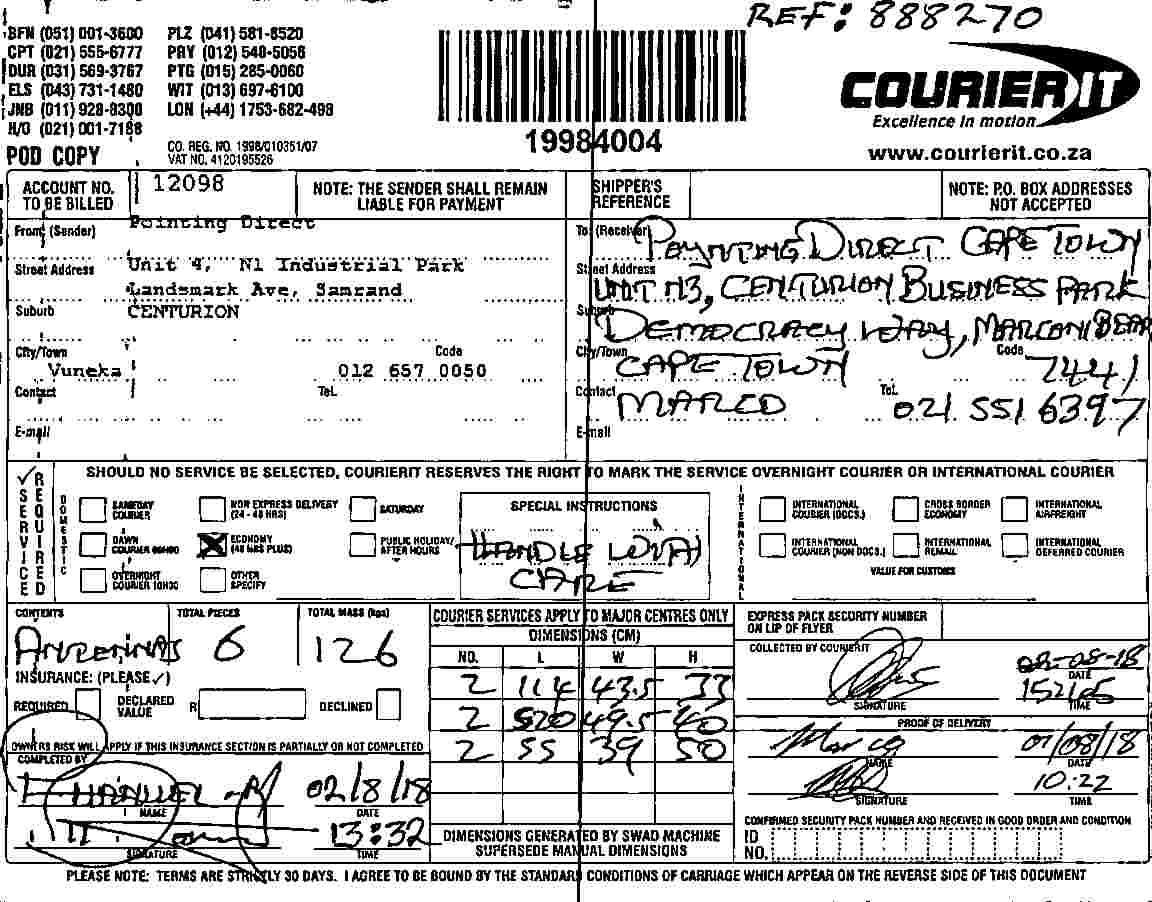 REF: 888270
BFN (051) 001-3600 PLZ (041) 581-8520
CPT (021) 555-6777 PRY (012) 548-5058
DUR (031) 569-3767 PTG (015) 285-0060
ELS (043) 731-1480 WIT (013) 697-6100
JNB (011) 928-8300 LON (+44) 1753-682-498
H/O (021) 001-7188
POD COPY
CO. REG. NO. 1998/010351/07
VAT NO. 4120195526
19984004
COURIER IT
Excellence in motion
www.courierit.co.za
ACCOUNT NO. TO BE BILLED 12098
NOTE: THE SENDER SHALL REMAIN LIABLE FOR PAYMENT
SHIPPER'S REFERENCE
NOTE: P.O. BOX ADDRESSES NOT ACCEPTED
From (Sender) Pointing Direct
Street Address Unit 4, N1 Industrial Park
Landsmark Ave, Samrand
Suburb CENTURION
City/Town Code
Vuneka 012 657 0050
Contact Tel.
E-mail
To (Receiver) POYNTING DIRECT CAPE TOWN
Street Address UNIT N3, CENTURION BUSINESS PARK
Suburb DEMOCRACY WAY, MARCONI BEAM
City/Town CAPE TOWN Code 7441
Contact MARCO Tel. 021 551 6397
E-mail
SERVICE REQUIRED
SHOULD NO SERVICE BE SELECTED, COURIERIT RESERVES THE RIGHT TO MARK THE SERVICE OVERNIGHT COURIER OR INTERNATIONAL COURIER
DOMESTIC
SAMEDAY COURIER
NON EXPRESS DELIVERY (24 - 48 HRS)
SATURDAY
DAWN COURIER
ECONOMY (48 HRS PLUS)
PUBLIC HOLIDAY/ AFTER HOURS
OVERNIGHT COURIER 10H30
OTHER SPECIFY
SPECIAL INSTRUCTIONS
HANDLE WITH
CARE
INTERNATIONAL
INTERNATIONAL COURIER (DOCS.)
CROSS BORDER ECONOMY
INTERNATIONAL AIRFREIGHT
INTERNATIONAL COURIER (NON DOCS.)
INTERNATIONAL REMAIL
INTERNATIONAL DEFERRED COURIER
VALUE FOR CUSTOMS
CONTENTS TOTAL PIECES TOTAL MASS (kgs)
6 126
INSURANCE: (PLEASE ✓)
REQUIRED DECLARED VALUE R DECLINED
OWNERS RISK WILL APPLY IF THIS INSURANCE SECTION IS PARTIALLY OR NOT COMPLETED
COMPLETED BY
02/8/18
NAME DATE
13:32
SIGNATURE TIME
COURIER SERVICES APPLY TO MAJOR CENTRES ONLY
DIMENSIONS (CM)
NO. L W H
2 114 43.5 33
2 49.5 40
2 55 39 50
DIMENSIONS GENERATED BY SWAD MACHINE SUPERSEDE MANUAL DIMENSIONS
EXPRESS PACK SECURITY NUMBER ON LIP OF FLYER
COLLECTED BY COURIERIT
DATE
SIGNATURE TIME
PROOF OF DELIVERY
Marco 07/08/18
NAME DATE
10:22
SIGNATURE TIME
CONFIRMED SECURITY PACK NUMBER AND RECEIVED IN GOOD ORDER AND CONDITION
ID NO.
PLEASE NOTE: TERMS ARE STRICTLY 30 DAYS. I AGREE TO BE BOUND BY THE STANDARD CONDITIONS OF CARRIAGE WHICH APPEAR ON THE REVERSE SIDE OF THIS DOCUMENT